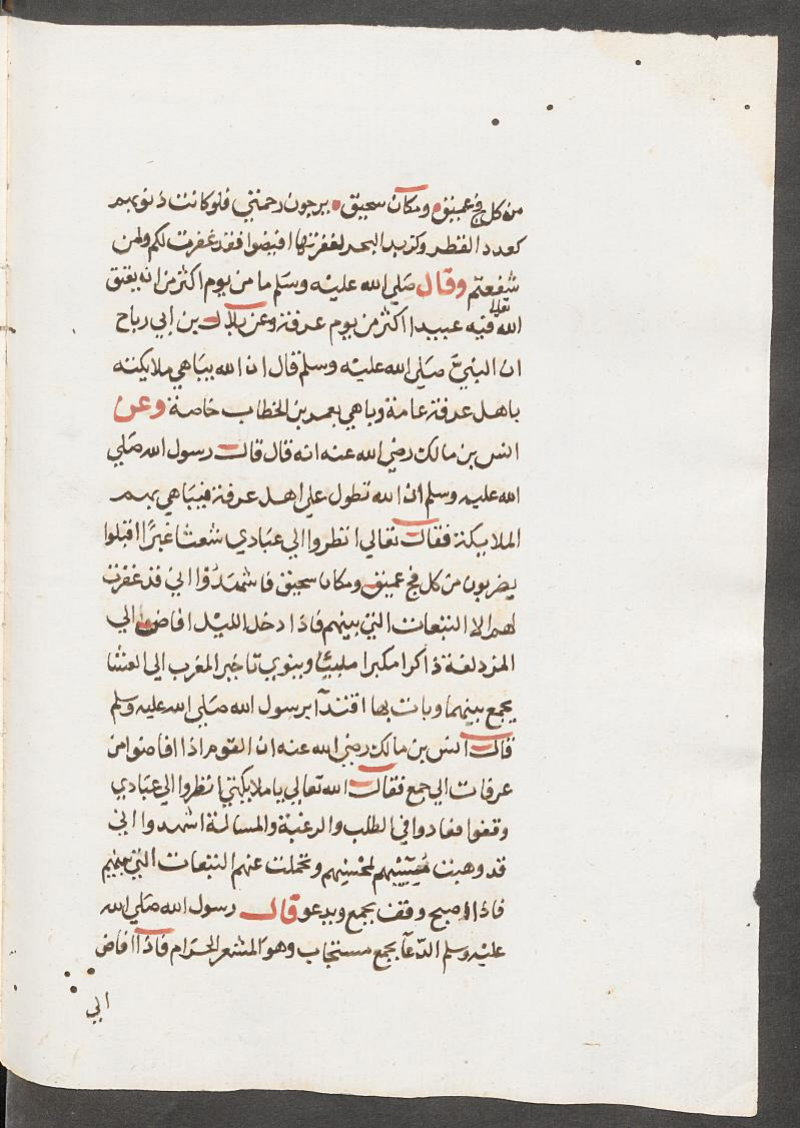 من كل فج عميق ومكان سحيق يرجون رحمتي فلو كانت ذنوبهم
كعدد القطر وكزبد البحر لغفرتها افيضوا فقد غفرت لكم ولمن
شفعتم وقال صلي الله عليه وسلم ما من يوم اكثر من ان يعتق
الله تعالى فيه عبيدا اكثر من يوم عرفة وعن بلال بن ابي رباح
ان النبي صلي الله عليه وسلم قال ان الله يباهي ملايكته
باهل عرفة عامة وباهي بعمر بن الخطاب خاصة وعن
انس بن مالك رضي الله عنه انه قال قال رسول الله صلي
الله عليه وسلم ان الله تطول علي اهل عرفة فيباهي بهم
الملايكة فقال تعالي انظروا الي عبادي شعثا غبرا اقبلوا
يضربون من كل فج عميق ومكان سحيق فاشهدوا اني قد غفرت
لهم الا التبعات التي بينهم فاذا دخل الليل افاضوا الي
المزدلفة ذاكرا مكبرا ملبيا وينوي تاخير المغرب الي العشا
يجمع بينهما وبات بها اقتدآ برسول الله صلي الله عليه وسلم
قال انس بن مالك رضي الله عنه ان القوم اذا افاضوا من
عرفات الي جمع فقال الله تعالي ياملايكتي انظروا الي عبادي
وقفوا فعادوا في الطلب والرغبة والمسالة اشهدوا اني
قد وهبت مسيئهم لمحسنهم وتحملت عنهم التبعات التي بينهم
فاذا اصبح وقف بجمع ويدعو قال رسول الله صلي الله
عليه وسلم الدعآ بجمع مستجاب وهو المشعر الحرام فاذا افاض
الي